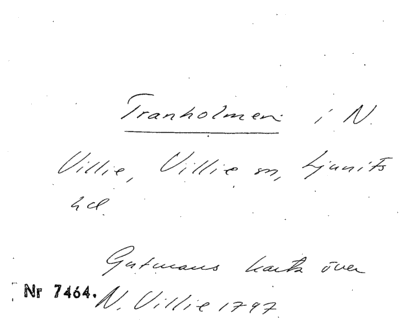 Tranholmen i N.
Villie, Villie sn, Ljunits
hd.
Gutmans karta över
Nr 7464. N. Villie 1797